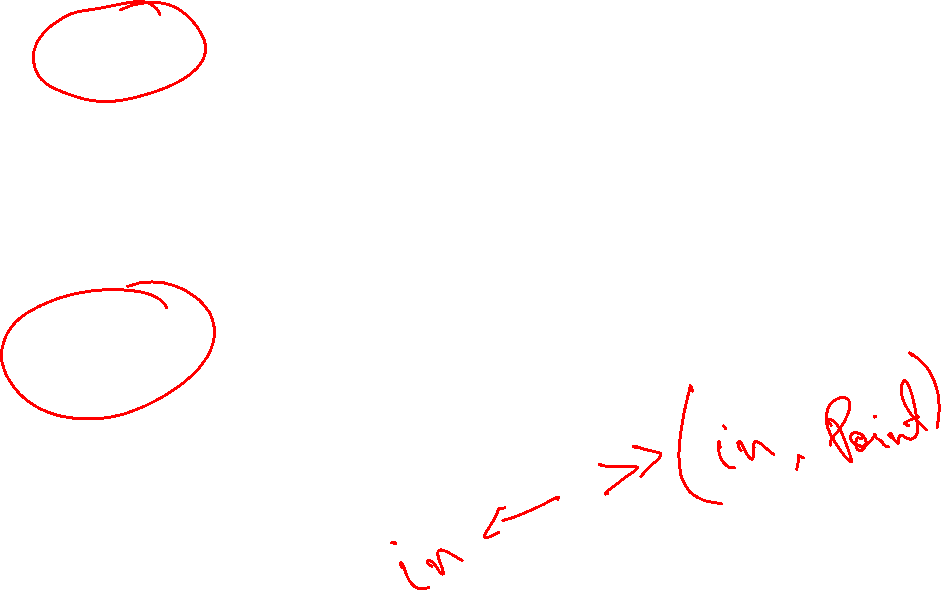 in ← >> (in, Point)